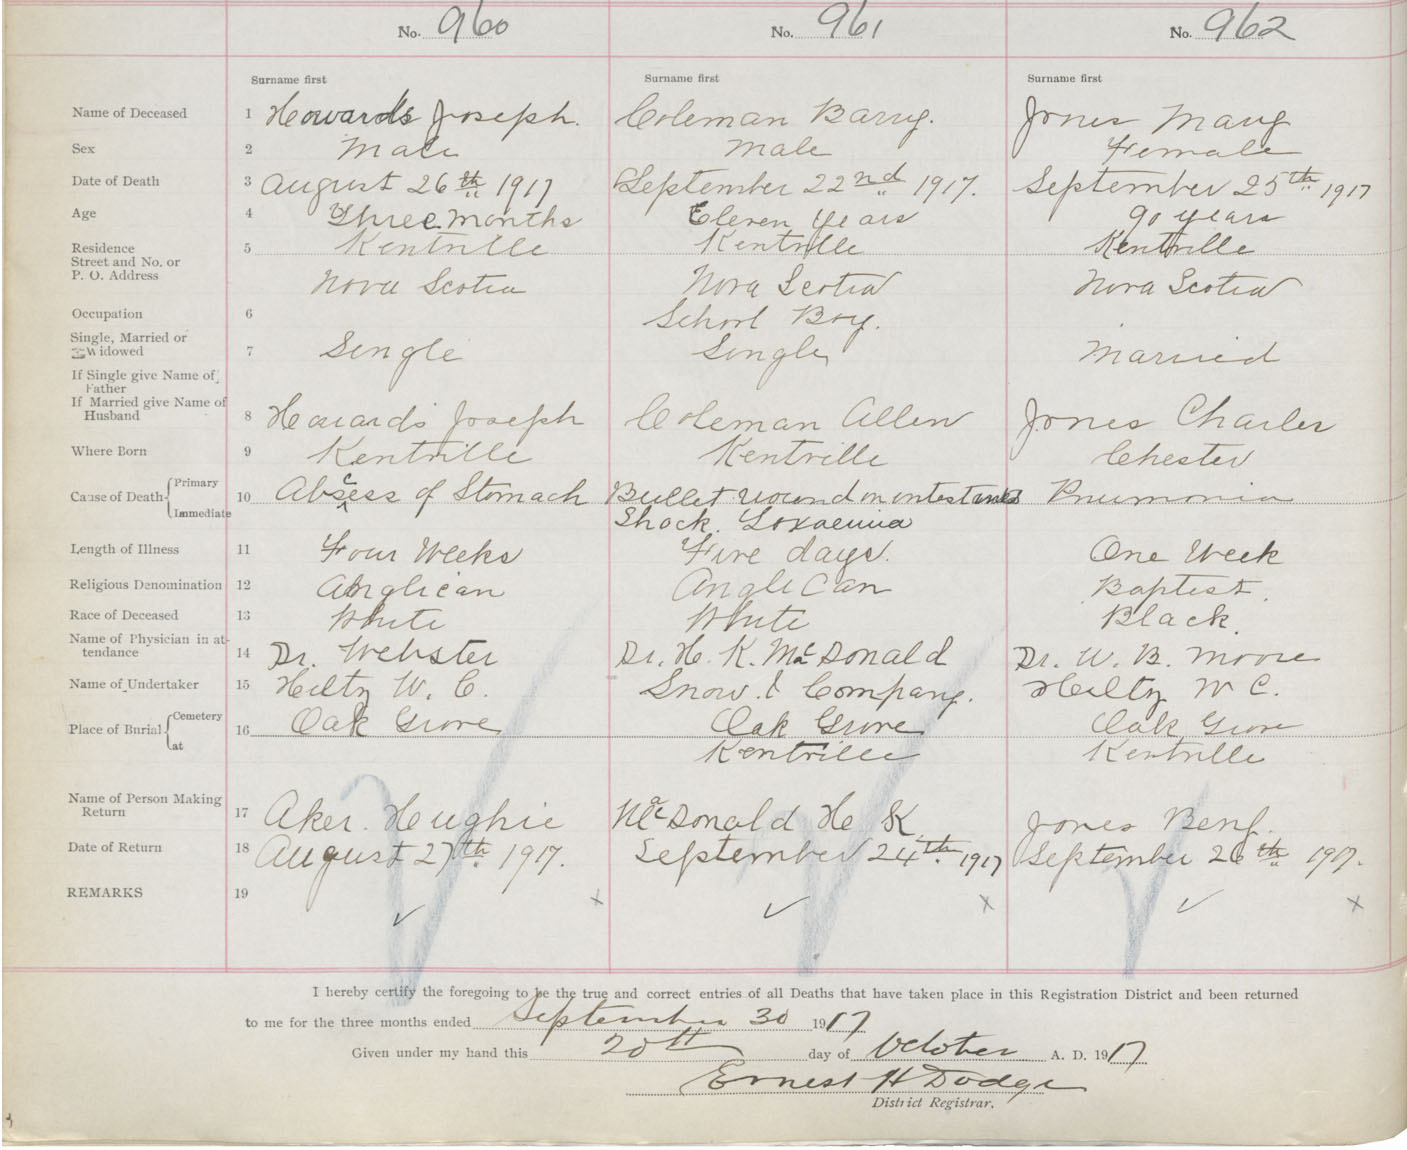 No. 960 No. 961 No. 962
Surname first Surname first Surname first
Name of Deceased 1 Howards Joseph. Coleman Barry. Jones Mary
Sex 2 Male Male Female
Date of Death 3 August 26th 1917 September 22nd 1917. September 25th 1917
Age 4 Three months Eleven Years 90 years
Residence 5 Kentville Kentville Kentville
Street and No. or
P. O. Address Nova Scotia Nova Scotia Nova Scotia
Occupation 6 School Boy.
Single, Married or
Widowed 7 Single Single Married
If Single give Name of
Father
If Married give Name of
Husband 8 Howards Joseph Coleman Allen Jones Charles
Where Born 9 Kentville Kentville Chester
Cause of Death Primary 10 Abscess of Stomach Bullet wound on intestines Pnumonia
Immediate Shock. Toxaemia
Length of Illness 11 Four Weeks Five days. One Week
Religious Denomination 12 Anglican Anglican Baptist.
Race of Deceased 13 White White Black.
Name of Physician in at-
tendance 14 Dr. Webster Dr. H. K. McDonald Dr. W. B. Moore
Name of Undertaker 15 Hiltz W. C. Snow & Company. Hiltz W C.
Place of Burial Cemetery 16 Oak Grove Oak Grove Oak Grove
at Kentville Kentville
Name of Person Making
Return 17 Aker. Hughie McDonald H K Jones Benj.
Date of Return 18 August 27th 1917. September 24th. 1917 September 26th 1917.
REMARKS 19
I hereby certify the foregoing to be the true and correct entries of all Deaths that have taken place in this Registration District and been returned
to me for the three months ended September 30 1917
Given under my hand this 20th day of October A. D. 1917
Ernest H Dodge
District Registrar.